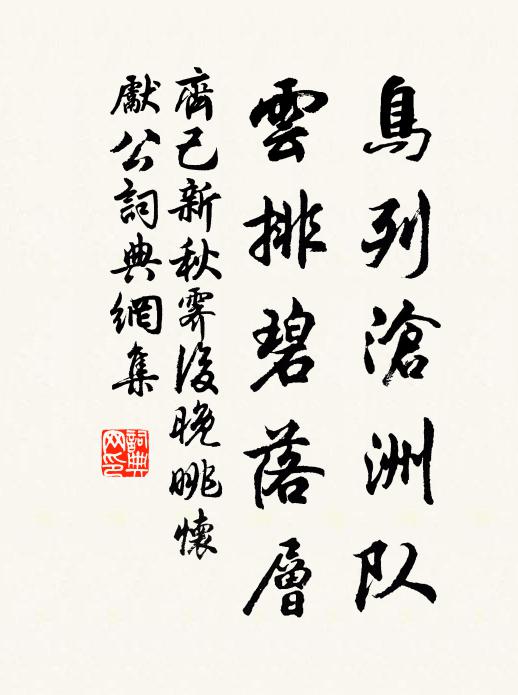 鳥列滄洲队
雲排碧落層
齊己新秋霽後晚眺懷
獻公詞典網集
詞典网印